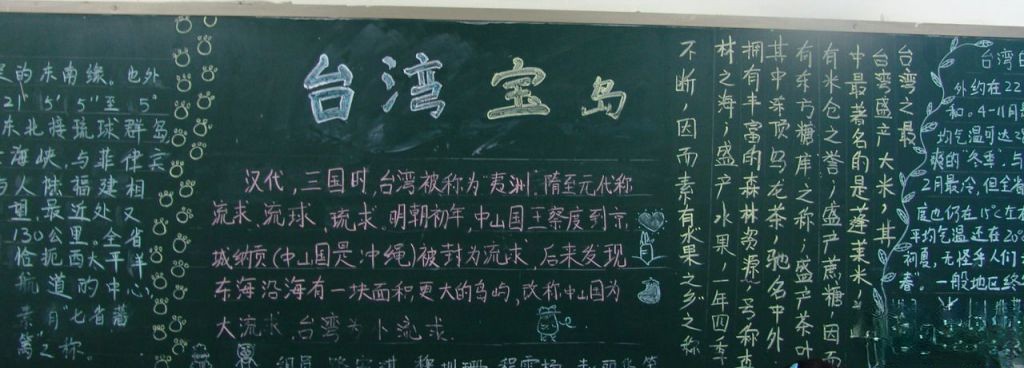 台湾宝岛
的东南缘，也外
21°15′5″至 5°
东北接琉球群岛
海峡，与菲律宾
人陆福建相
望，最近处又
130公里。全省
扼西太平洋
航道的中心，
素有"七省藩
篱"之称。
汉代，三国时，台湾被称为"夷洲"，隋至元代称
流求、流球、琉求。明朝初年，中山国王察度到京
城纳贡(中山国是冲绳)被封为流求，后来发现
东海沿海有一块面积更大的岛屿，改称中山国为
大流求，台湾为小流求.
台湾之最
台湾盛产大米，其
中最著名的是蓬莱米，
有米仓之誉；盛产蔗糖，因而
有东方糖库之称；盛产茶叶
其中冻顶乌龙茶，驰名中外
拥有丰富的森林资源，号称森
材之海；盛产水果，一年四季
不断，因而素有"水果之乡"之称
台湾
外约在22
和。4-11月
均气温可达2
爽的冬季，与
2月最冷，但全省
度也仍在15℃左右
平均气温还在20℃
初夏，无怪乎人们
春"。一般地区终